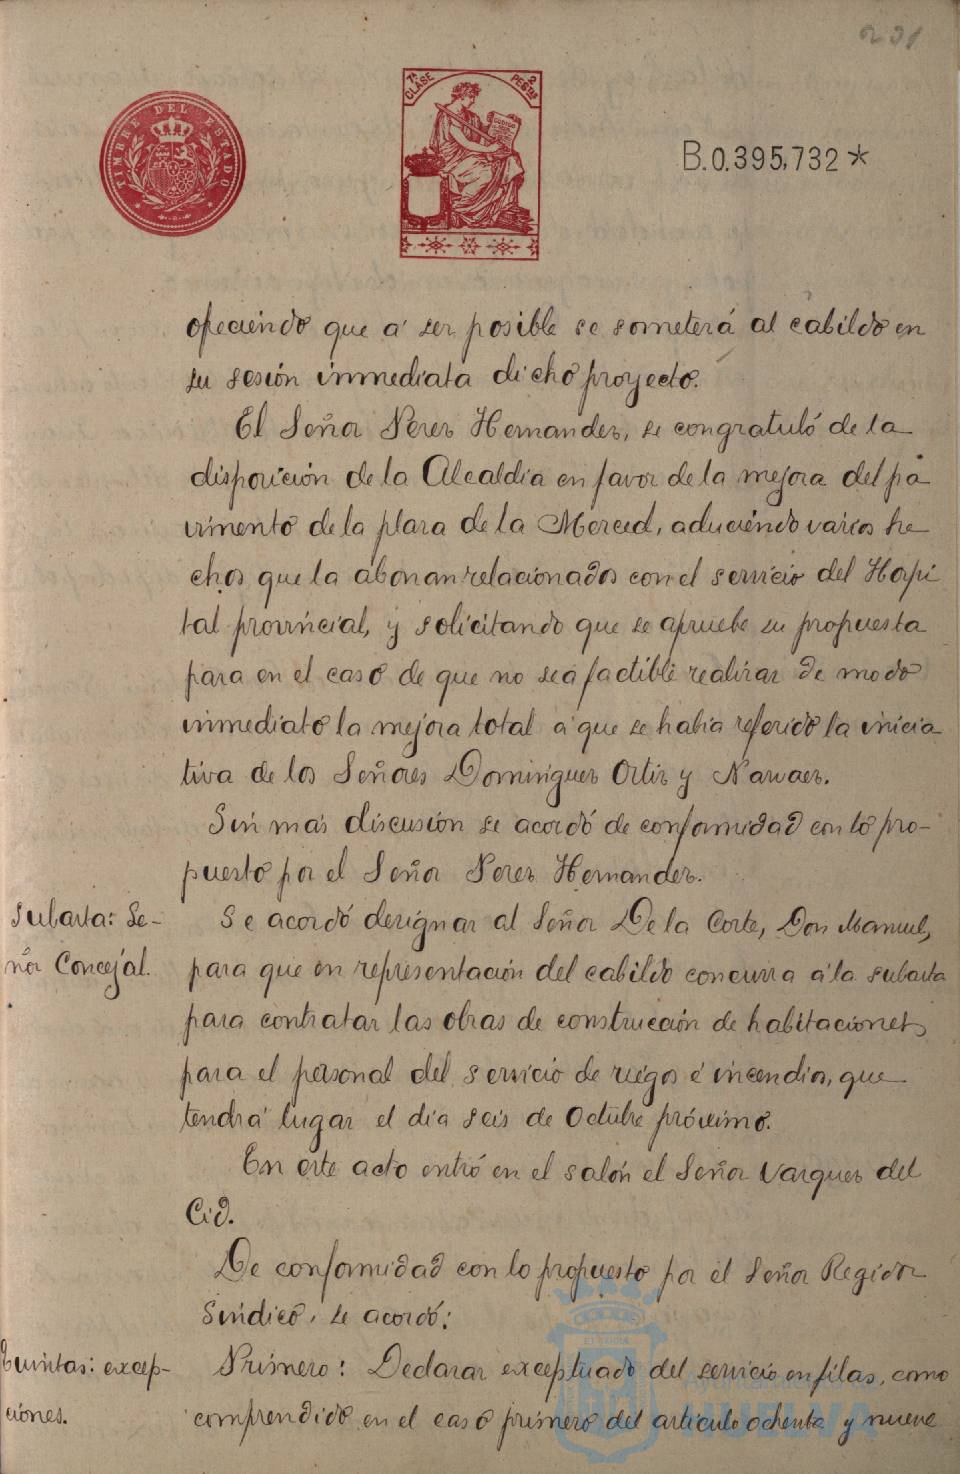 231
TIMBRE DEL ESTADO
7ª CLASE
2 PESTAS
B.0.395,732*
ofreciendo que á ser posible se someterá al cabildo en
su sesión inmediata dicho proyecto.
El Señor Perez Hernandez, se congratuló de la
disposición de la Alcaldia en favor de la mejora del pa
vimento de la plaza de la Merced, aduciendo varios he
chos que la abonan relacionados con el servicio del Hospi
tal provincial, y solicitando que se apruebe su propuesta
para en el caso de que no sea factible realizar de modo
inmediato la mejora total á que se habia referido la inicia
tiva de los Señores Dominguez Ortiz y Narvaez.
Sin mas discusión se acordó de conformidad con lo pro-
puesto por el Señor Perez Hernandez.
Subasta: Se-
ñor Concejal.
Se acordó designar al Señor De la Corte, Don Manuel,
para que en representación del cabildo concurra á la subasta
para contratar las obras de construcción de habitaciones
para el personal del servicio de riegos é incendios, que
tendrá lugar el dia seis de Octubre próximo.
En este acto entró en el salón el Señor Vazquez del
Cid.
De conformidad con lo propuesto por el Señor Regidor
Sindico, se acordó:
Quintas: excep-
ciones.
Primero: Declarar exceptuado del servicio en filas, como
comprendido en el caso primero del articulo ochenta y nueve
Ayuntamiento de
HUELVA